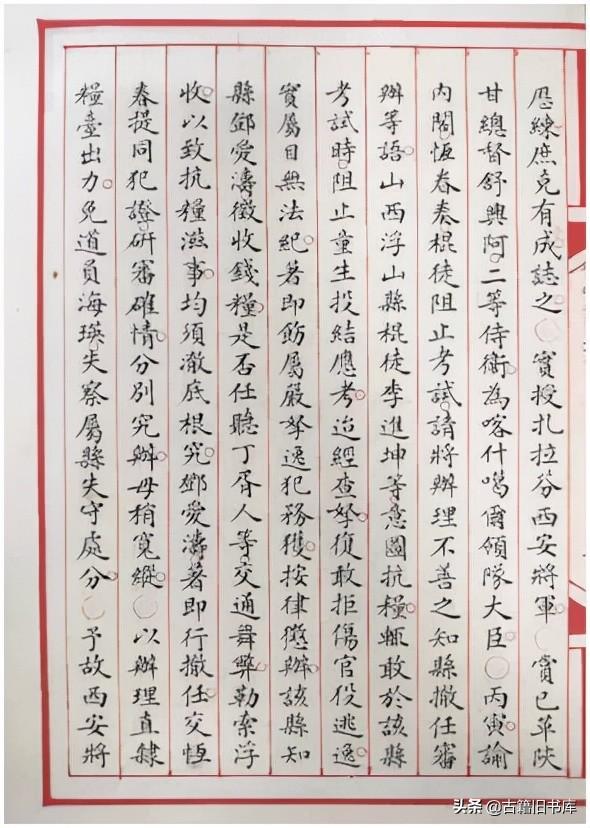 恩綠庶克有成誌之○實授扎拉芬西安將軍○賞已革陝
甘總督舒興阿二等侍衛為喀什噶爾領隊大臣○丙寅諭
內閣恆春奏棍徒阻止考試請將辦理不善之知縣撤任審
辦等語山西浮山縣棍徒李進坤等意圖抗糧輒敢於該縣
考試時阻止童生投結應考迨經查拏復敢拒傷官役逃逸
實屬目無法紀著即飭屬嚴拏逸犯務獲按律懲辦該縣知
縣鄧愛濤徵收錢糧是否任聽丁胥人等交通舞弊勒索浮
收以致抗糧滋事均須澈底根究鄧愛濤著即行撤任交恆
春提同犯證研審確情分別究辦毋稍寬縱○以辦理直隸
糧臺出力免道員海瑛失察屬縣失守處分○予故西安將
头条@古籍旧书库